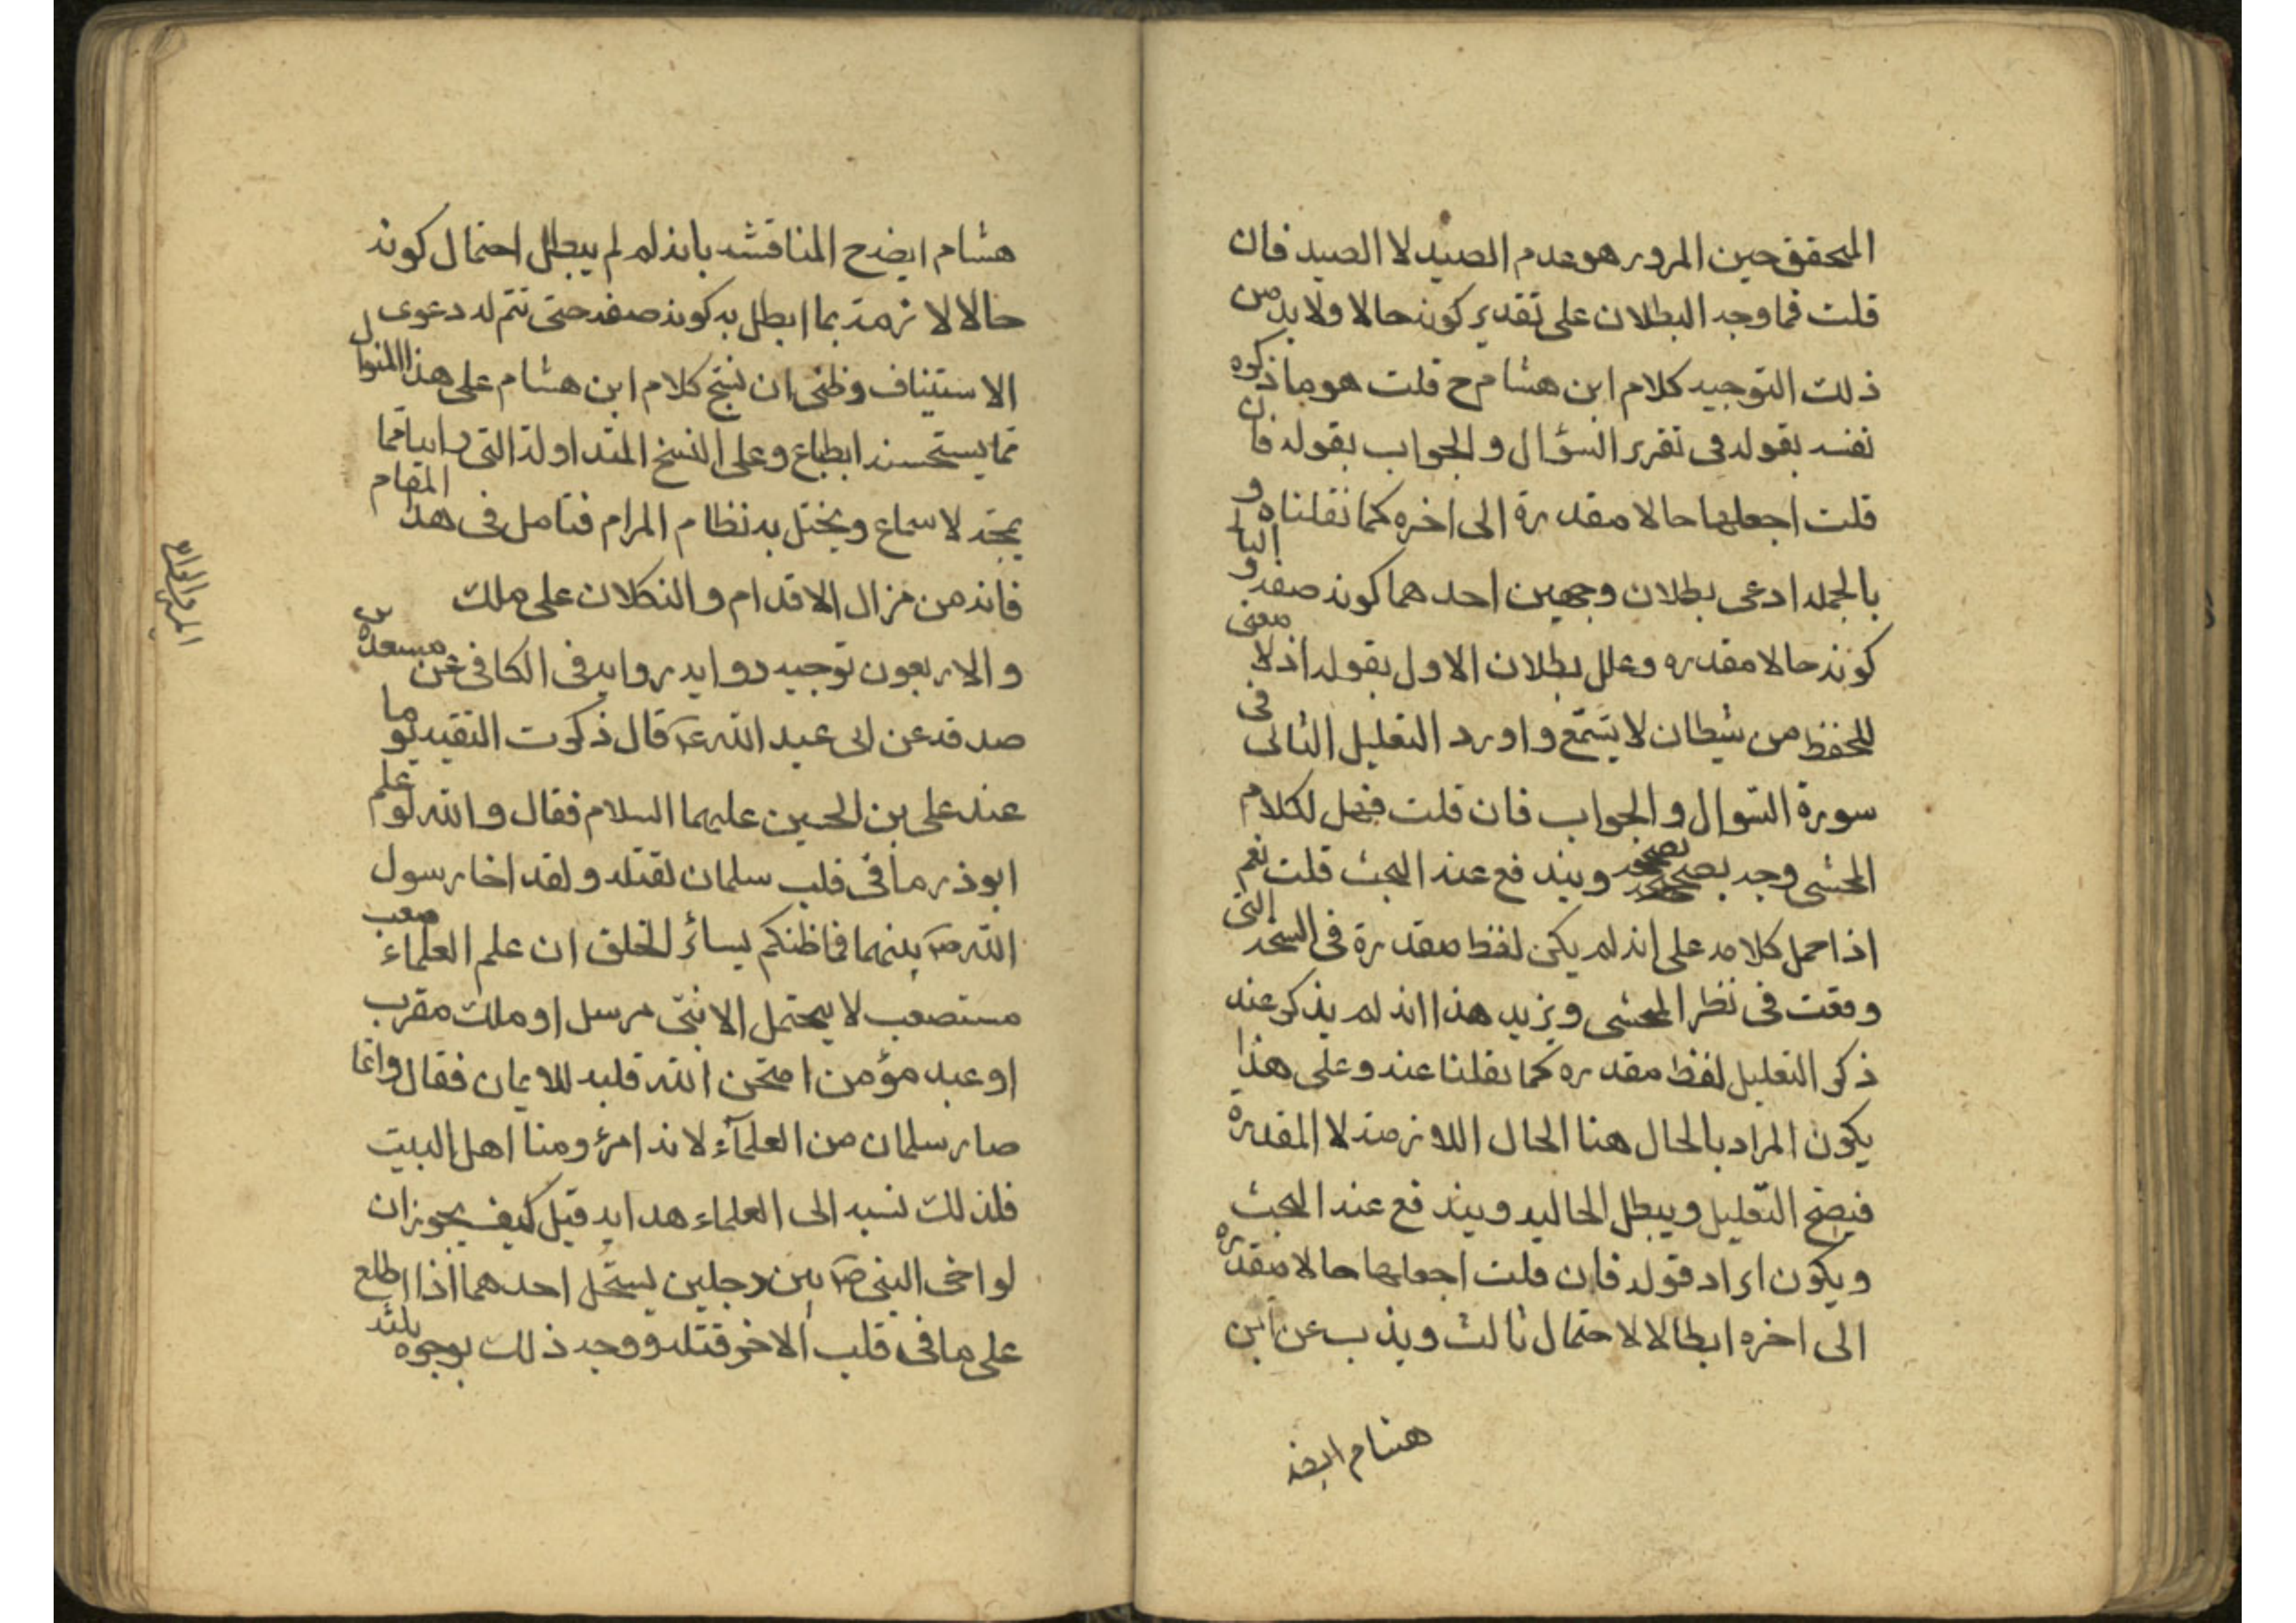 المحقق حين المرور هو عدم الصيد لا الصيد فان
قلت فما وجه البطلان على تقدير كونه حالا ولا بد من
ذلك التوجيه كلام ابن هشام ح قلت هو ما ذكره
نفسه بقوله فى تقرير السؤال والجواب بقوله فان
قلت اجعلها حالا مقدرة الى اخره كما نقلناه و
بالجمله ادعى بطلان وجهين احدهما كونه صفه و الثانى
كونه حالا مقدره وعلل بطلان الاول بقوله اذ لا معنى
للحفظ من شيطان لا يتسمّع و اورد التعليل الثانى فى
سورة السوال والجواب فان قلت فهل لكلام
المحشى وجه يصححه ويندفع عنه البحث قلت نعم
اذا حمل كلامه على انه لم يكن لفظ مقدرة فى النسخه التى
وقعت فى نظر المحشى ويزيد هذا انه لم يذكر عند
ذكر التعليل لفظ مقدره كما نقلنا عنه وعلى هذا
يكون المراد بالحال هنا الحال اللازمة لا المقدرة
فيصح التعليل ويبطل الحاليه ويندفع عنه البحث
ويكون ايراد قوله فان قلت اجعلها حالا مقدره
الى اخره ابطالا لاحتمال ثالث ويذب عن ابن
هشام ايضا
هشام ايضا ح المناقشه بانه لم لم يبطل احتمال كونه
حالا لازمة بما ابطل به كونه صفه حتى تتم له دعوى
الاستيناف وظنى ان نتج كلام ابن هشام على هذا المنوال
مما يستحسنه الطباع وعلى النسخ المتداولة التى رايناها مما
يمجّه الاسماع ويختل به نظام المرام فتامل فى هذا المقام
فانه من مزال الاقدام والتكلان على ملك
والاربعون توجيه روايه روايه فى الكافى عن مسعدة بن
صدقه عن ابى عبد الله ع قال ذكرت التقيه يوما
عند على بن الحسين عليهما السلام فقال والله لو علم
ابوذر ما فى قلب سلمان لقتله ولقد اخا رسول
الله ص بينهما فما ظنكم بسائر الخلق ان علم العلماء صعب
مستصعب لا يحتمل الا نبى مرسل او ملك مقرب
او عبد مؤمن امتحن الله قلبه للايمان فقال وانما
صار سلمان من العلماء لانه امرؤ منا اهل البيت
فلذلك نسبه الى العلماء هدايه قيل كيف يجوز ان
لواخى النبى ص بين رجلين يستحل احدهما اذا اطلع
على ما فى قلب الاخر قتله ووجه ذلك بوجوه ثلثه